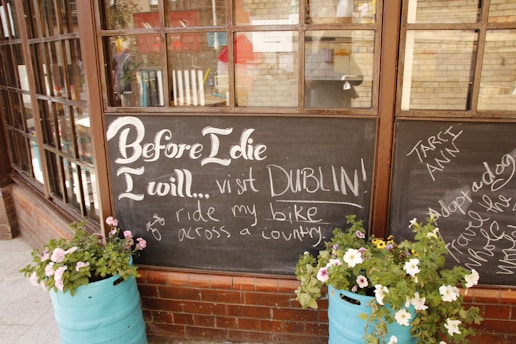 Before I die
I will... visit DUBLIN!
ride my bike
across a country.
TARCI
ANN
Adopt a dog
Travel the
whole
world